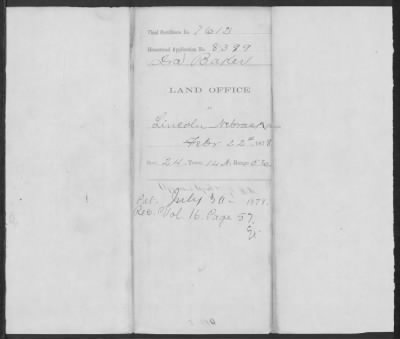 Final Certificate No. 7612
Homestead Application No. 8399
Ira Baker
LAND OFFICE
at
Lincoln Nebraska
Febr 22d 1878
Sec. 24 Town. 14 N. Range
Pat. July 30 1878.
Rec. Vol. 16. Page 57.